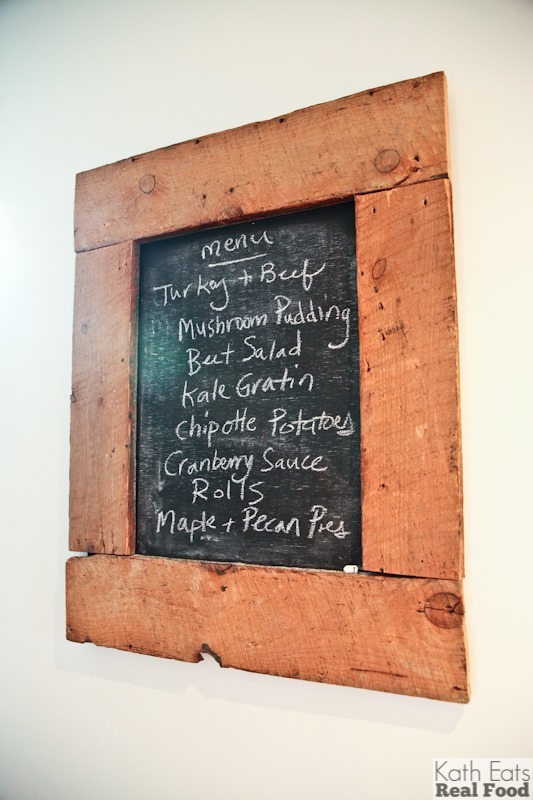 menu
Turkey + Beef
Mushroom Pudding
Beet Salad
Kale Gratin
Chipotle Potatoes
Cranberry Sauce
Rolls
Maple + Pecan Pies
Kath Eats
Real Food